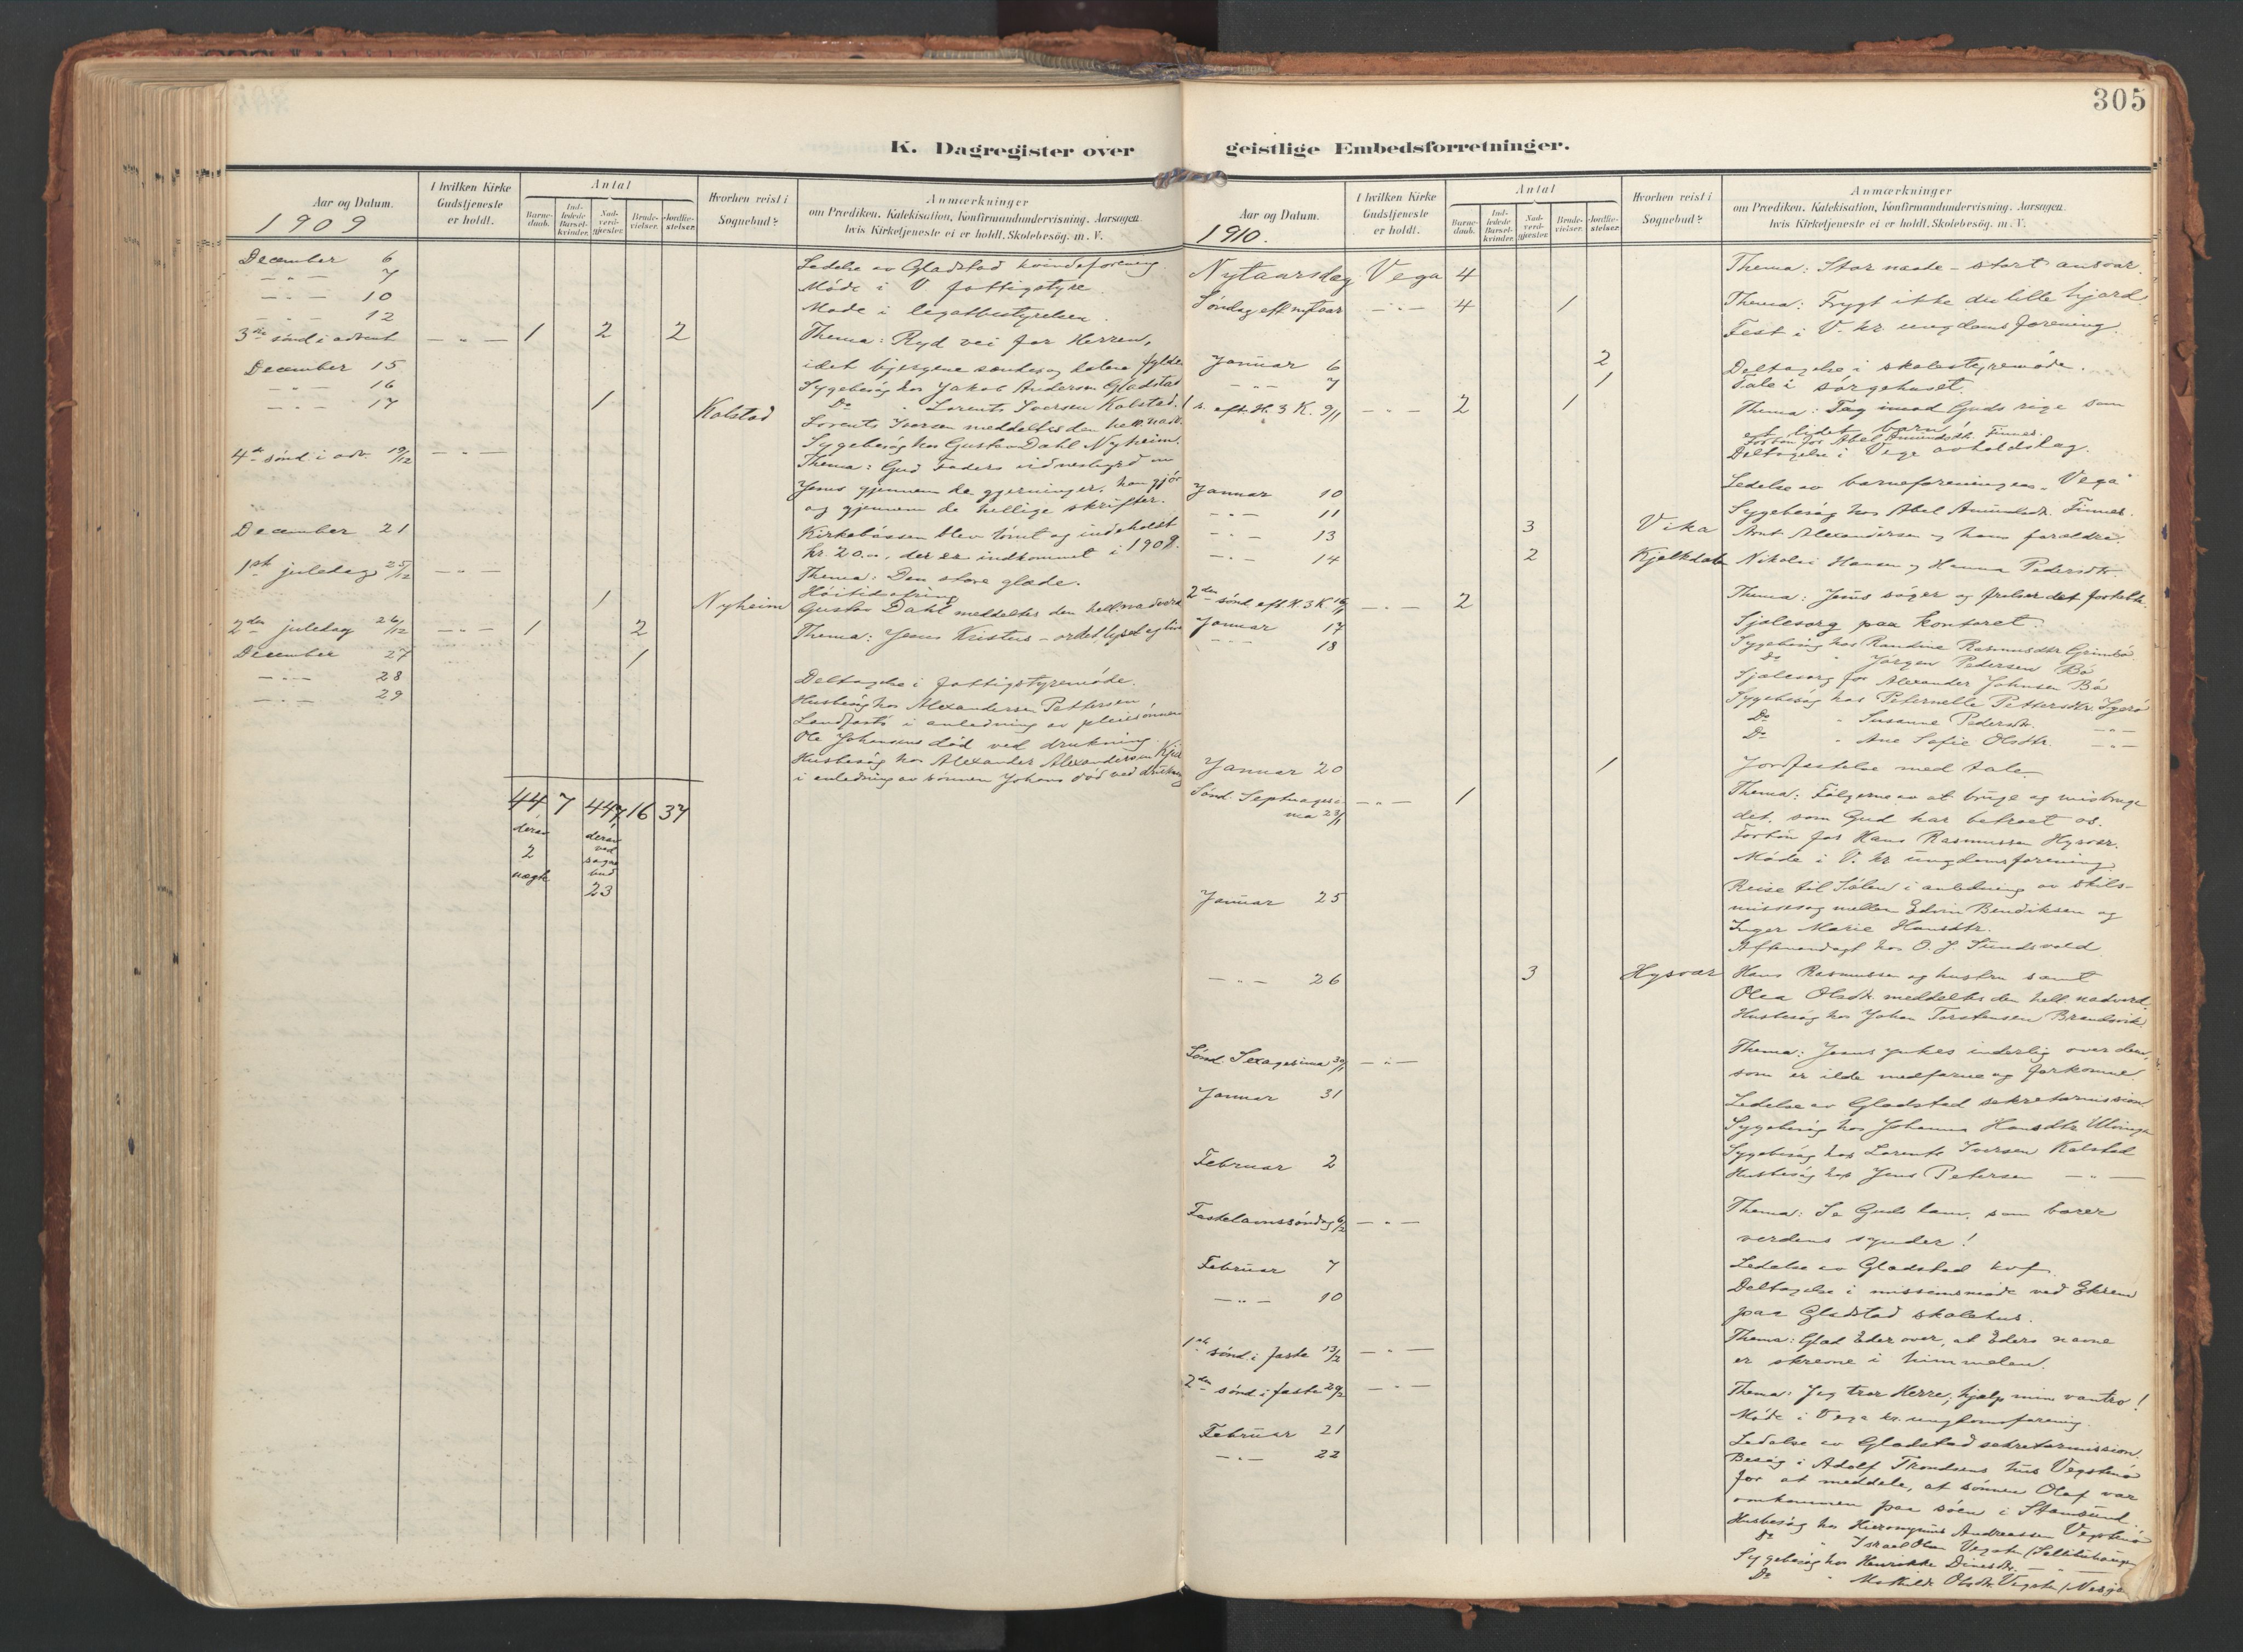 305
K. Dagregister over geistlige Embedsforretninger.
Aar og Datum.
1909
I hvilken Kirke Gudstjeneste er holdt.
Antal
Barne-daab.
Ind-ledede Barsel-kvinder.
Nad-verd-gjester.
Brude-vielser.
Jordfæ-stelser.
Hvorhen reist i Sognebud?
Anmærkninger
om Prædiken, Katekisation, Konfirmandundervisning, Aarsagen,
hvis Kirketjeneste ei er holdt, Skolebesög, m. V.
December 6 Ledelse av Gladstad kvindeforening.
— " — 7 Møde i V. fattigstyre
— " — 10 Møde i legatbestyrelsen.
— " — 12
3die sønd i advent — " — 1 2 2 Thema: Ryd vei for Herren,
idet bjergene sænkes og dalene fyldes
December 15 Sygebesøg hos Jakob Andersen Gladstad
— " — 16 Do " Lorents Iversen Kalstad.
— " — 17 1 Kalstad Lorents Iversen meddeltes den hell. nadv.
Sygebesøg hos Gustav Dahl Nyheim.
4de sønd. i adv. 19/12 — " — Thema: Gud Faders vidnesbyrd om
Jesus gjennem de gjerninger, han gjør
og gjennem de hellige skrifter.
December 21 Kirkebøssen blev tømt og indeholdt
kr. 20.., der er indkommet i 1909.
1ste juledag 25/12 — " — Thema: Den store glæde.
Høitidsofring
1 Nyheim Gustav Dahl meddeltes den hell. nadverd
2den juledag 26/12 — " — 1 2 Thema: Jesus Kristus – ordet, lyset og livet
December 27 1
— " — 28 Deltagelse i fattigstyremøde.
— " — 29 Husbesøg hos Alexandersen Pettersen
i anledning av pleiesønnen
Ole Johansens død ved drukning.
Husbesøg hos Alexander Alexandersen
i anledning av sønnen Johans død ved drukning
44 7 447 16 37
derav 2 nægte
derav ved sognebud 23
Aar og Datum.
1910.
I hvilken Kirke Gudstjeneste er holdt.
Antal
Barne-daab.
Ind-ledede Barsel-kvinder.
Nad-verd-gjester.
Brude-vielser.
Jordfæ-stelser.
Hvorhen reist i Sognebud?
Anmærkninger
om Prædiken, Katekisation, Konfirmandundervisning, Aarsagen,
hvis Kirketjeneste ei er holdt, Skolebesög, m. V.
Nytaarsdag Vega 4 Thema: Stor naade – stort ansvar.
Søndag eft. nytaar — " — 4 1 Thema: Frygt ikke du lille hjord
Fest i V. kr. ungdomsforening.
Januar 6 2 Deltagelse i skolestyremøde.
— " — 7 1 Tale i sørgehuset
1 s. eft. H. 3 K. 9/1 — " — 2 1 Thema: Tag imod Guds rige som
et lidet barn!
Forbøn for Abel Amundsdtr. Finnes.
Deltagelse i Vega avholdslag.
Januar 10 Ledelse av barneforeningen "Vega"
— " — 11 Sygebesøg hos Abel Amundsdtr. Finnes.
— " — 13 3 Vika Arnt Alexandersen og hans forældre
— " — 14 2 Kjelkdalen Nikolai Hansen og Hanna Pedersdtr.
2den sønd. eft. H. 3 K. 16/1 — " — 2 Thema: Jesus søger og frelser det fortabte.
Januar 17 Sjælesorg paa kontoret.
— " — 18 Sygebesøg hos Randine Rasmusdtr. Grimsø
Do " Jørgen Pedersen Bø
Sjælesorg for Alexander Johnsen Bø
Sygebesøg hos Peternelle Pettersdtr. Igerø
Do " Susanne Pedersdtr. — " —
Do " Ane Sofie Olsdtr. — " —
Januar 20 1 Jordfæstelse med tale
Sønd. Septuagesima 23/1 — " — 1 Thema: Følgerne av at bruge og misbruge
det, som Gud har betroet os.
Forbøn for Hans Rasmussen Hysvær.
Møde i V. kr. ungdomsforening.
Januar 25 Reise til Søla i anledning av skils-
missesag mellem Edvin Bendiksen og
Inger Marie Hansdtr.
Aftenandagt hos O. J. Sundsvold
— " — 26 3 Hysvær Hans Rasmussen og hustru samt
Olea Olsdtr. meddeltes den hell. nadverd.
Husbesøg hos Johan Torstensen Brandsvik
Sønd. Sexagesima 30/1 — " — Thema: Jesus ynkes inderlig over dem,
som er ilde medfarne og forkomne.
Januar 31 Ledelse av Gladstad sekretærmission
Sygebesøg hos Johanna Hansdtr.
Februar 2 Sygebesøg hos Lorents Iversen Kalstad
Husbesøg hos Jens Petersen — " —
Fastelavnssøndag 6/2 — " — Thema: Se Guds lam, som bærer
verdens synder!
Februar 7 Ledelse av Gladstad kvf.
— " — 10 Deltagelse i missionsmøde ved Ekren
paa Gladstad skolehus.
1ste sønd. i faste 13/2 — " — Thema: Glæd Eder over, at Eders navne
er skrevne i himmelen.
2den sønd. i faste 20/2 — " — Thema: Jeg tror Herre; hjælp min vantro!
Møde i Vega kr. ungdomsforening.
Februar 21 Ledelse av Gladstad sekretærmission.
— " — 22 Besøg i Adolf Trondsens hus Vegstenø
for at meddele, at sønnen Olaf var
omkommen paa søen i Stamsund.
Husbesøg hos Hieronymus Andreassen Vegstenø
do " Israel Olsen Vegsten
Sygebesøg hos Henrikke Dinesdtr. — " —
Do " Mathilde Olsdtr. Vegsten